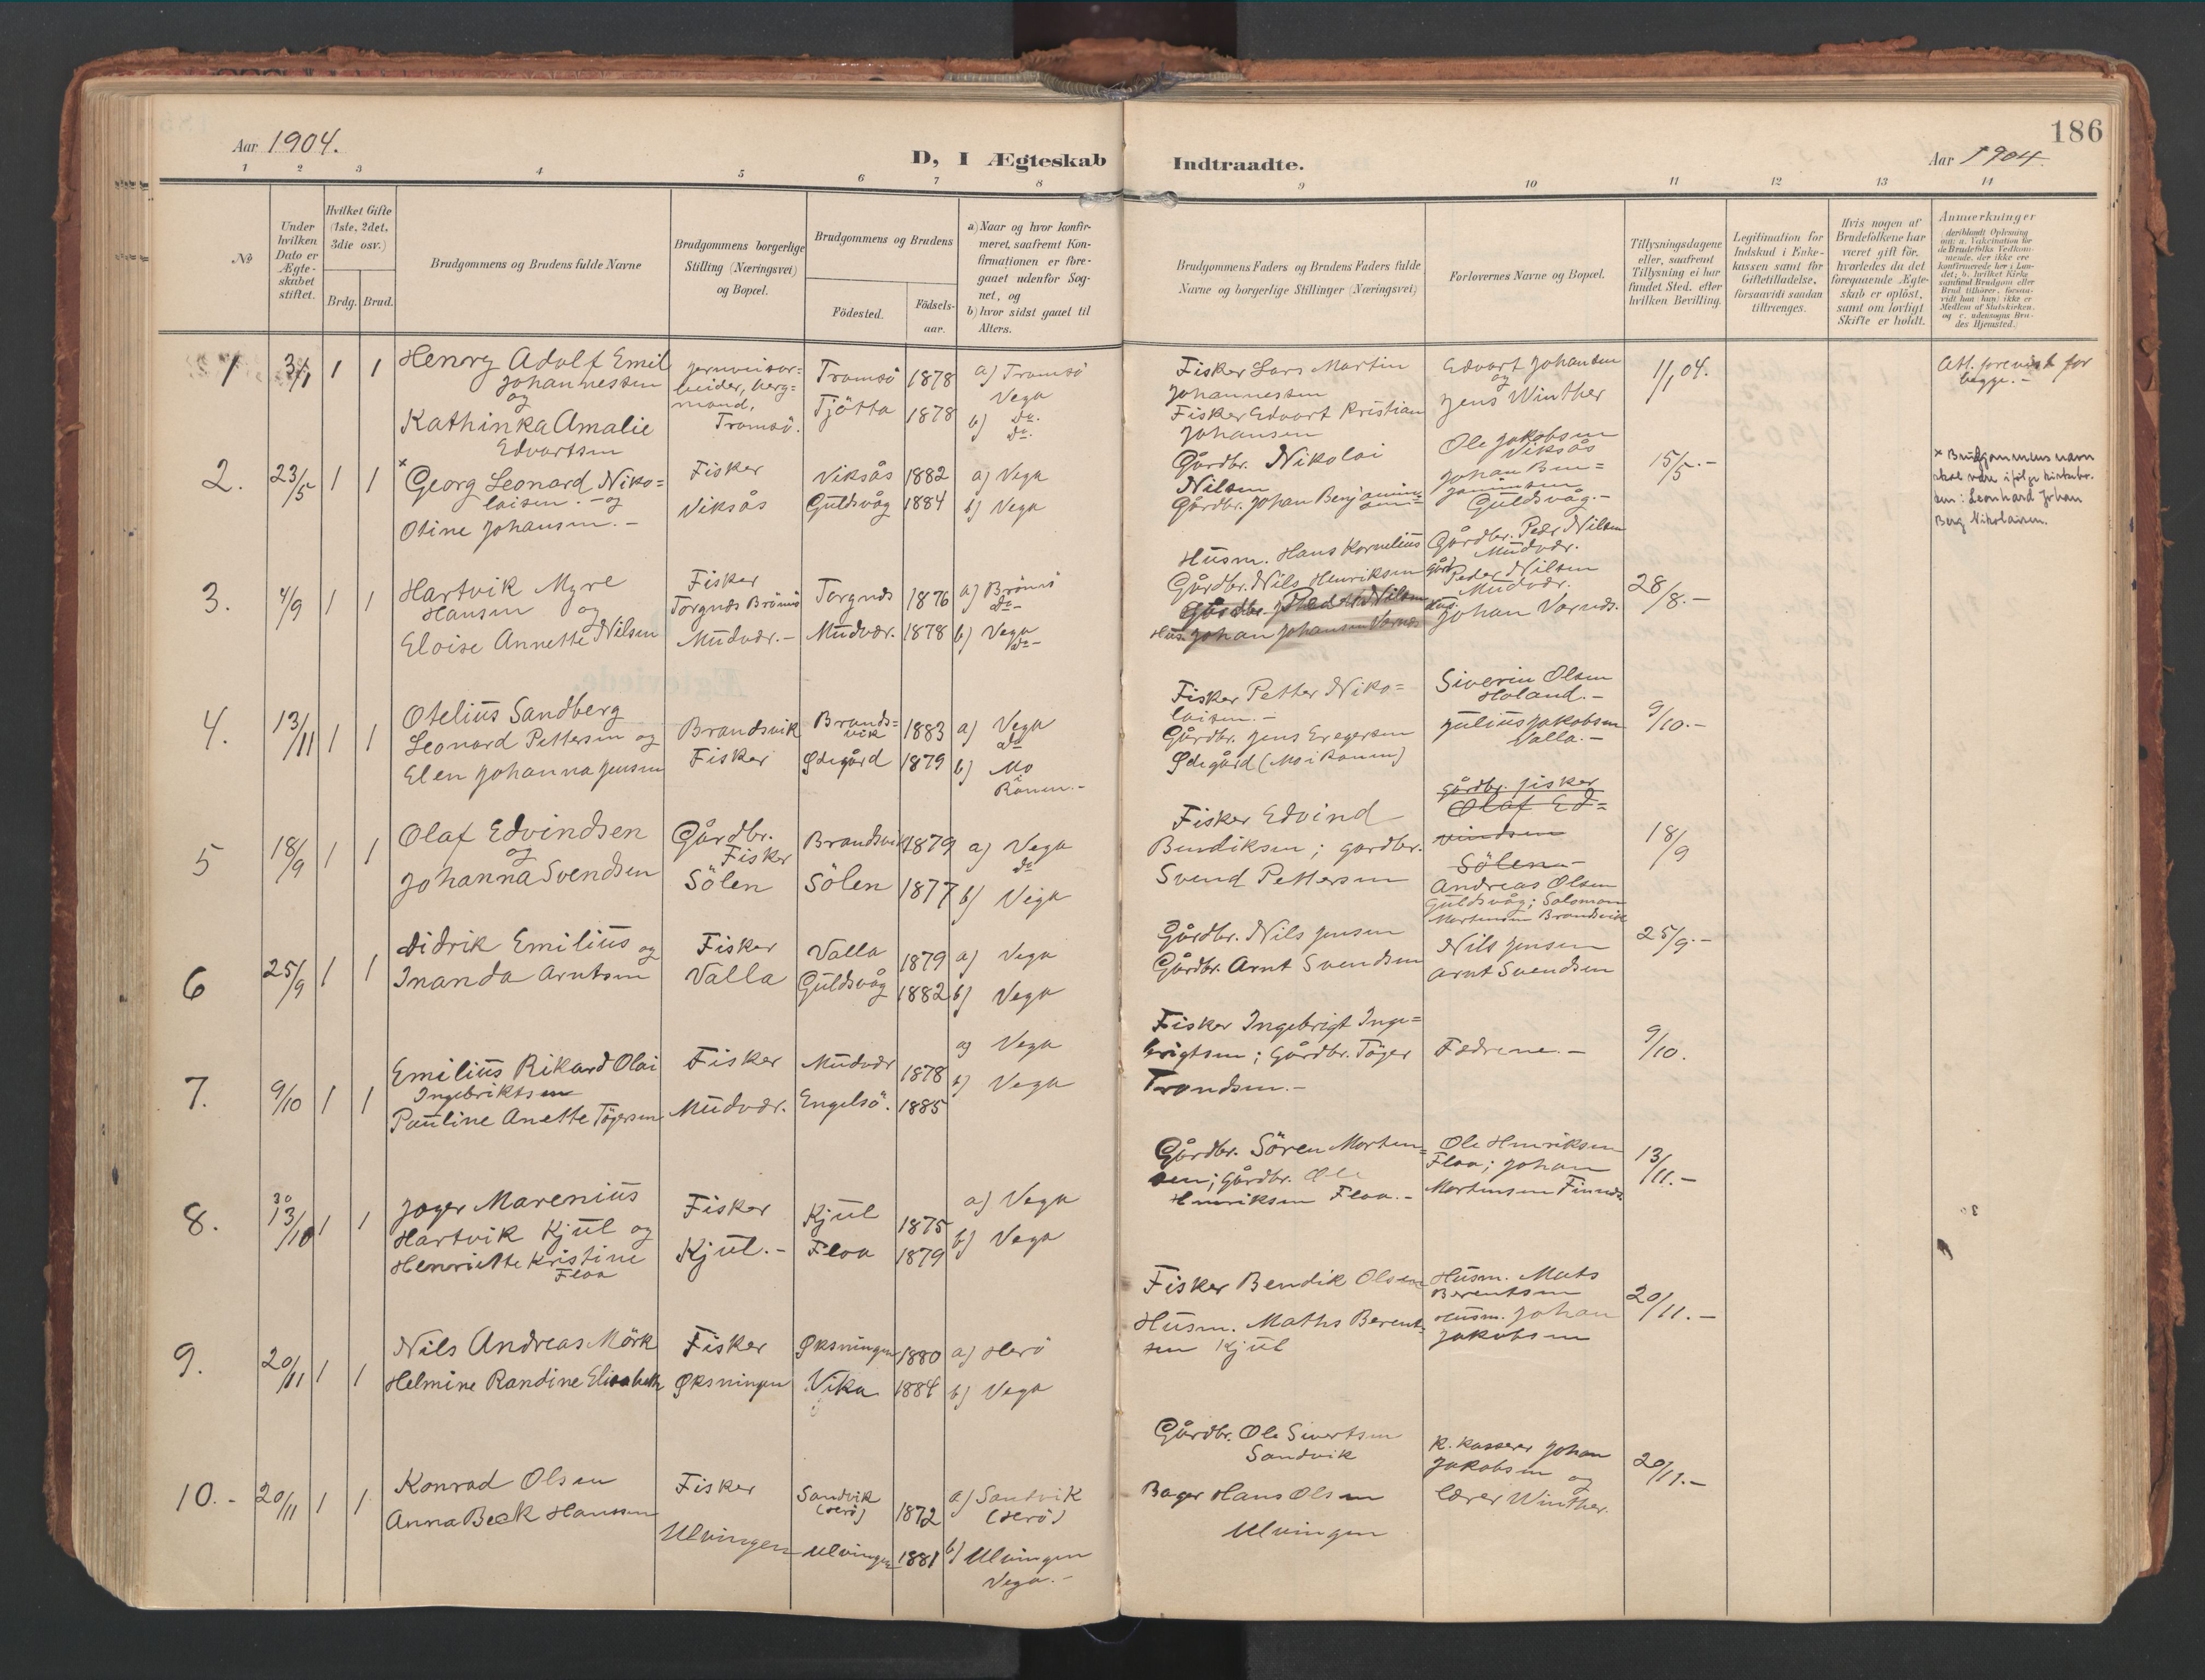 186
Aar 1904.
D, I Ægteskab Indtraadte.
Aar 1904.
1 2 3 4 5 6 7 8 9 10 11 12 13 14
No
Under hvilken Dato er Ægteskabet stiftet.
Hvilket Gifte (1ste, 2det, 3die osv.)
Brdg. Brud.
Brudgommens og Brudens fulde Navne
Brudgommens borgerlige Stilling (Næringsvei) og Bopæl.
Brudgommens og Brudens
Födested.
Födselsaar.
a) Naar og hvor konfirmeret, saafremt Konfirmationen er foregaaet udenfor Sognet, og
b) hvor sidst gaaet til Alters.
Brudgommens Faders og Brudens Faders fulde Navne og borgerlige Stillinger (Næringsvei)
Forlovernes Navne og Bopæl.
Tillysningsdagene eller, saafremt Tillysning ei har fundet Sted, efter hvilken Bevilling.
Legitimation for Indskud i Enkekassen samt for Giftetilladelse, forsaavidt saadan tiltrænges.
Hvis nogen af Brudefolkene har været gift för, hvorledes da det foregaaende Ægteskab er oplöst, samt om lovligt Skifte er holdt.
Anmerkninger
1 3/1 1 1
Henry Adolf Emil
Johannessen
og
Kathinka Amalie
Edvartsen
Tromsö.
Tromsö 1878
Tjötta 1878
a) Tromsö
Vega
b) do.
do.
Fisker Lars Martin
Johannessen
Fisker Edvart Kristian
Johansen
Edvart Johansen
og
Jens Winther
11/1 04.
Att. forevist for
begge. -
2. 23/5 1 1
x Georg Leonard Niko=
laisen. - og
Otine Johansen. -
Fisker
Viksås
Viksås 1882
Guldsvåg 1884
a) Vega
b) Vega
Gårdbr. Nikolai
Nilsen
Gårdbr. Johan Benjamin=
Ole Jakobsen
Viksås
Johan Ben=
jaminsen
Guldsvåg. -
15/5. -
x Brudgommens navn
skal være ifölge kirkebo.
Leonhard Johan
Berg Nikolaisen.
3. 4/9 1 1
Hartvik Myre
Hansen og
Eloise Annette Nilsen
Fisker
Torgnes Brönö
Mudvær. -
Torgnes 1876
Mudvær. 1878
a) Brönö
do -
b) Vega
do -
Husm. Hans Kornelius
Gårdbr. Nils Henriksen
Gårdbr. Peder Nilsen
Johan Johansen Vornes
Gårdbr. Peder Nilsen
Mudvær.
Peder Nilsen
Mudvær.
Johan Vornes.
28/8. -
4. 13/11 1 1
Otelius Sandberg
Leonard Pettersen og
Elen Johanna Jensen
Brandsvik
Fisker
Brands=
vik 1883
Ødegård 1879
a) Vega
do
b) Mo
i
Ranen. -
Fisker Petter Niko=
laisen. -
Gårdbr. Jens Eregersen
Ødegård (Mo i Ranen)
Siverin Olsen
Holand. -
Julius Jakobsen
Valla. -
9/10. -
5 18/9 1 1
Olaf Edvindsen
og
Johanna Svendsen
Gårdbr.
Fisker
Sölen
Brandsvik 1879
Sölen 1877
a) Vega
do
b) Vega
Fisker Edvind
Bendiksen; gardbr.
Svend Pettersen
gårdbr. fisker
Olaf Ed=
vindsen
Sölen -
Andreas Olsen
Guldsvåg; Salomon
Mortensen Brandsvik
18/9
6 25/9 1 1
Didrik Emilius og
Inanda Arntsen
Fisker
Valla
Valla 1879
Guldsvåg 1882
a) Vega
b) Vega
Gårdbr. Nils Jensen
Gårdbr. Arnt Svendsen
Nils Jensen
Arnt Svendsen
25/9. -
7. 9/10 1 1
Emilius Rikard Olai
Ingebriktsen
Pauline Anette Tögersen
Fisker
Mudvær.
Mudvær 1878
Engelsö. 1885
a) Vega
b) Vega
Fisker Ingebrigt Inge=
brigtsen; Gårdbr. Töger
Trondsen. -
Fædrene. -
9/10.
8. 30 13/10 1 1
Joger Marenius
Hartvik Kjul og
Henriette Kristine
Floa
Fisker
Kjul. -
Kjul 1875
Floa 1879
a) Vega
b) Vega
Gårdbr. Sören Morten=
sen; Gårdbr. Ole
Henriksen Floa. -
Ole Henriksen
Floa; Johan
Mortensen Finnes
13/11. -
9. 20/11 1 1
Nils Andreas Mörk
Helmine Randine Elisabeth
Fisker
Øksningen
Øksningen 1880
Vika 1884
a) Herö
b) Vega
Fisker Bendik Olsen
Husm. Maths Berent=
sen Kjul
Husm. Mats
Berentsen
Husm. Johan
Jakobsen
20/11. -
10. - 20/11 1 1
Konrad Olsen
Anna Beck Hanssen
Fisker
Ulvingen
Sandvik
(Herö) 1872
Ulvingen 1881
a) Sandvik
(Herö)
b) Ulvingen
Vega. -
Gårdbr. Ole Sivertsen
Sandvik
Bager Hans Olsen
Ulvingen
K. Kasserer Johan
Jakobsen og
Lærer Winther.
20/11. -